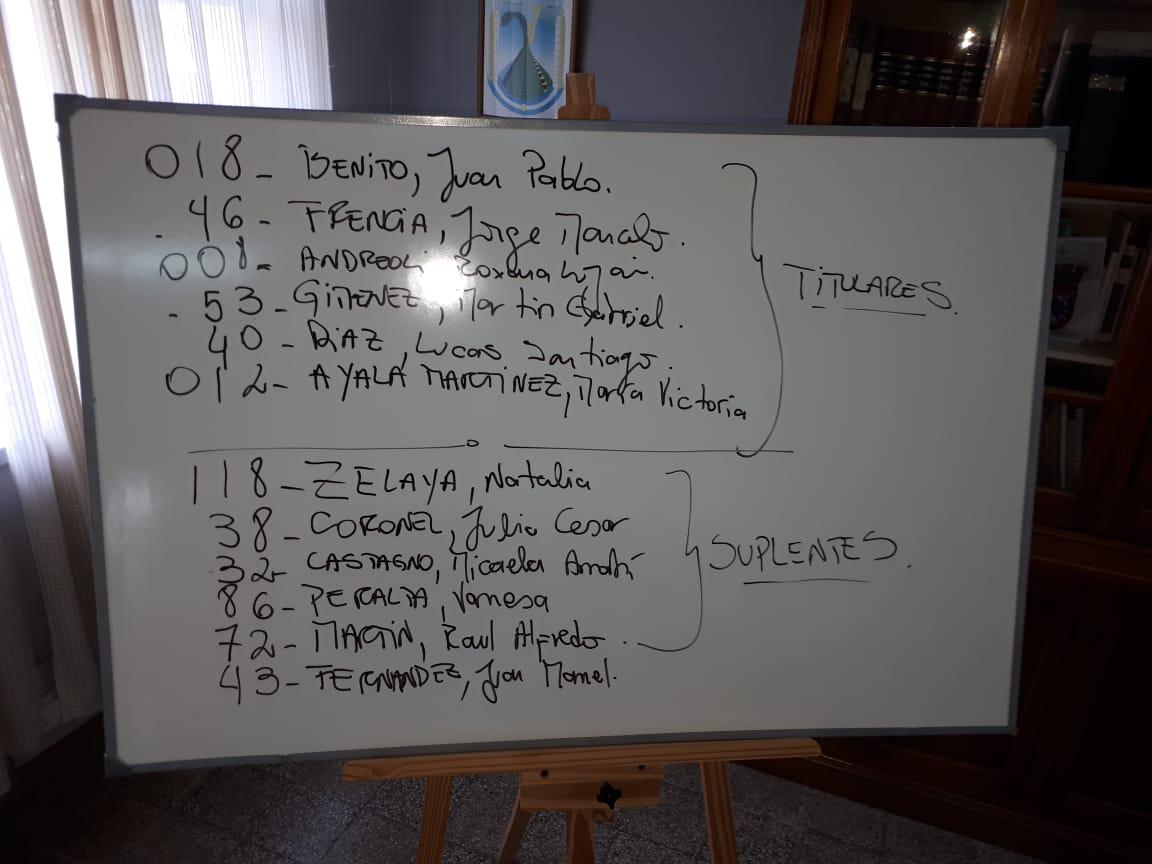 018- BENITO, Juan Pablo.
46- FRENCIA, Jorge Marcelo.
008- ANDREOLI Roxana Luján.
53- GIMENEZ, Martin Gabriel.
40- DIAZ, Lucas Santiago.
012- AYALA MARTINEZ, María Victoria
TITULARES.
118- ZELAYA, Natalia
38- CORONEL, Julio Cesar
32- CASTAGNO, Micaela
86- PERALTA, Vanesa
72- MARTIN, Raul Alfredo.
43- FERNANDEZ, Juan Manuel.
SUPLENTES.